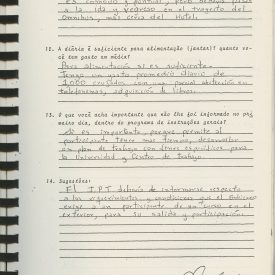 Es cómodo y puntual, pero
a la ida y regreso en el trayecto del
Omnibus, más cerca del Hotel.
12. A diária é suficiente para alimentação (jantas)? quanto vo-
cê tem gasto em média?
Para alimentación si es suficiente.
Tengo un gasto promedio diario de
1,000 cruzados con una parcial abstención en
telefonemas, adquisición de libros.
13. O que você acha importante que não lhe foi informado no pri-
meiro dia, dentro do programa de instruções gerais?
Si es importante, porque permite al
participante tener más tiempo, desarrollar
un plan de trabajo con fines específicos para
la Universidad y Centro de trabajo.
14. Sugestões:
El I.P.T debería de informarse respecto
a los requerimientos y condiciones que el Gobierno
exige a un participante de un curso en el
exterior, para su salida y participación.